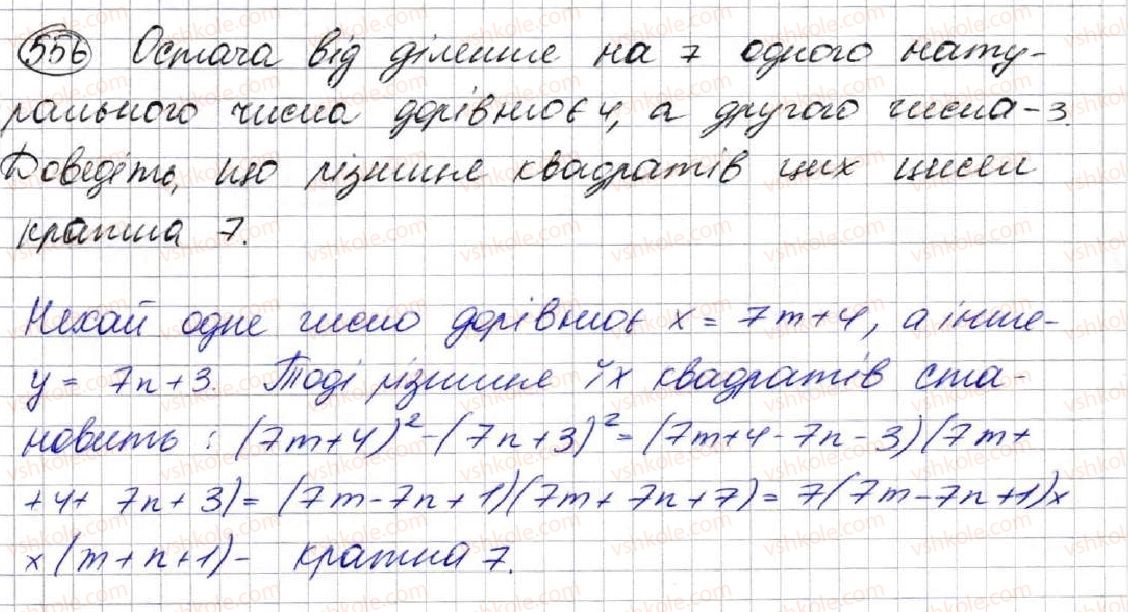 556 Остача від ділення на 7 одного нату-
рального числа дорівнює 4, а другого числа - 3.
Доведіть, що різниця квадратів цих чисел
кратна 7.
Нехай одне число дорівнює x = 7m+4, а інше-
y = 7n+3. Тоді різниця їх квадратів ста-
новить : (7m+4)²-(7n+3)²=(7m+4-7n-3)(7m+
+4+ 7n+3)=(7m-7n+1)(7m+7n+7)=7(7m-7n+1)x
x(m+n+1)- кратна 7.